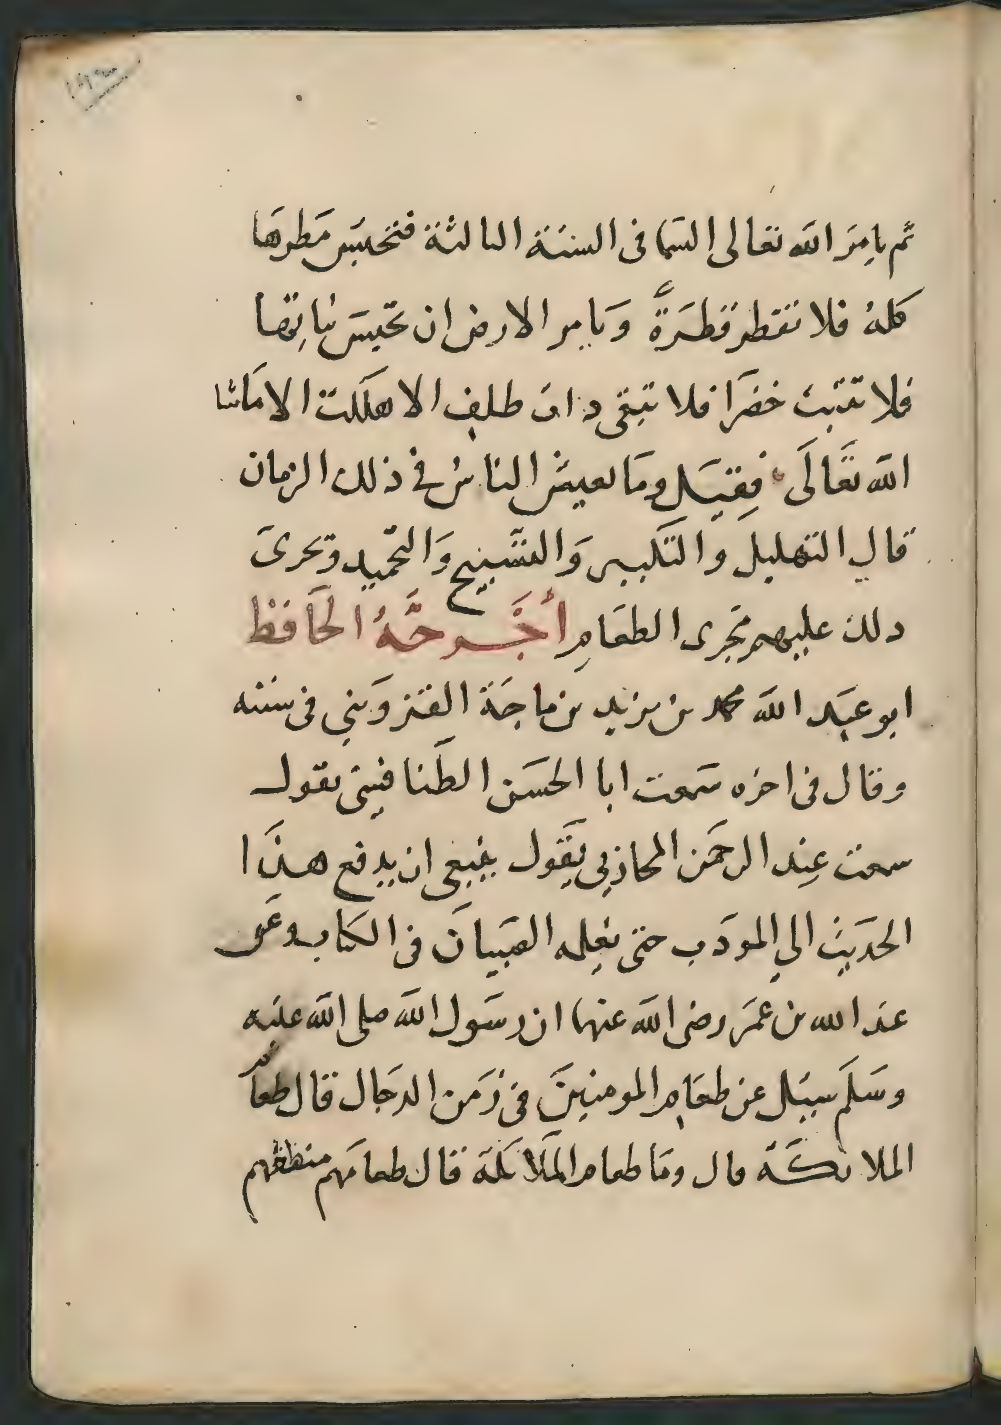 ثم يامر الله تعالى السما فى السنة الثالثة فتحبس مطرها
كله فلا تقطر قطرة ويامر الارض ان تحبس نباتها
فلا تنبت خضرا فلا تبقى ذات ظلف الا هلكت الا ماشا
الله تعالى فقيل وما يعيش الناس في ذلك الزمان
قال التهليل والتكبير والتسبيح والتحميد وتجرى
ذلك عليهم مجرى الطعام أخرجه الحافظ
ابو عبد الله محمد بن يزيد بن ماجة القزويني فى سننه
وقال فى اخره سمعت ابا الحسن الطنافيسى يقول
سمعت عبد الرحمن المحاربي يقول ينبغى ان يدفع هذا
الحديث الي المودب حتى يعلمه الصبيان فى الكتاب وعن
عبد الله بن عمر رضى الله عنهما ان رسول الله صلى الله عليه
وسلم سيل عن طعام المومنين فى زمن الدجال قال طعام
الملائكة قال وما طعام الملائكة قال طعامهم منطقهم